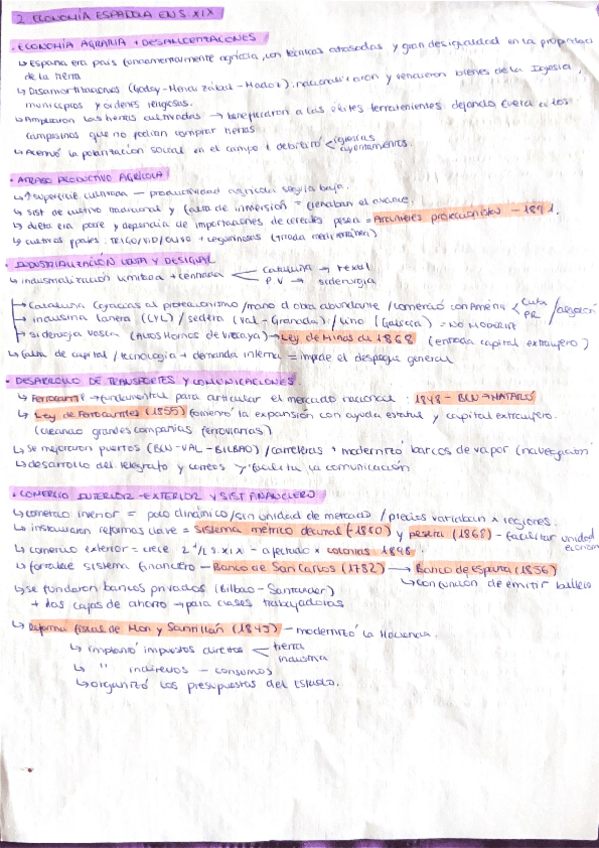 2. ECONOMÍA ESPAÑOLA EN S. XIX
• ECONOMÍA AGRARIA + DESAMORTIZACIONES
↳ España era país fundamentalmente agrícola, con técnicas atrasadas y gran desigualdad en la propiedad
de la tierra
↳ Desamortizaciones (Godoy - Mendizábal - Madoz): nacionalizaron y vendieron bienes de la Iglesia,
municipios y órdenes religiosas.
↳ Ampliaron las tierras cultivadas → beneficiaron a las élites terratenientes dejando fuera a los
campesinos que no podían comprar tierras.
↳ Acentuó la polarización social en el campo + debilitó < iglesias
ayuntamientos.
• ATRASO PRODUCTIVO AGRÍCOLA
↳ ↑ superficie cultivada — productividad agrícola seguía baja.
↳ sist de cultivo tradicional y falta de inversión = frenaban el avance.
↳ dieta era pobre y dependía de importaciones de cereales pesea = Aranceles proteccionistas - 1891.
↳ cultivos ppales: TRIGO/VID/OLIVO + leguminosas (triada mediterránea)
• INDUSTRIALIZACIÓN LENTA Y DESIGUAL
↳ industrialización limitada + centrada < Cataluña → textil
P.V → siderurgia
↳ Cataluña (gracias al proteccionismo / mano d obra abundante / comercio con América < Cuba / algodón
PR
↳ industria lanera (CYL) / sedera (Val - Granada) / lino (Galicia) = NO MODERNIZ
↳ siderurgia vasca (Altos Hornos de Vizcaya) → Ley de Minas de 1868 (entrada capital extranjero)
↳ falta de capital / tecnología + demanda interna = impide el despegue general
• DESARROLLO DE TRANSPORTES Y COMUNICACIONES
↳ Ferrocarril → fundamental para articular el mercado nacional: 1848 - BCN → MATARÓ
↳ Ley de Ferrocarriles (1855) fomentó la expansión con ayuda estatal y capital extranjero.
(creando grandes compañías ferroviarias)
↳ se mejoraron puertos (BCN - VAL - BILBAO) / carreteras + modernizó barcos de vapor (navegación)
↳ desarrollo del telégrafo y correos → facilita la comunicación
• COMERCIO INTERIOR - EXTERIOR Y SIST FINANCIERO
↳ comercio interior = poco dinámico / sin unidad de mercado / precios variaban x regiones.
↳ instauraron reformas clave = sistema métrico decimal (-1880) y peseta (1868) - facilitar unidad
económ
↳ comercio exterior = crece 2ª 1/2 s. XIX - afectado x colonias 1898.
↳ fortalece sistema financiero — Banco de San Carlos (1782) → Banco de España (1856)
↳ con función de emitir billetes
↳ se fundaron bancos privados (Bilbao - Santander)
+ las cajas de ahorro → para clases trabajadoras
↳ Reforma fiscal de Mon y Santillán (1845) - modernizó la Hacienda.
↳ implantó impuestos directos < tierra
industria
↳ " indirectos - consumos
↳ organizó los presupuestos del Estado.